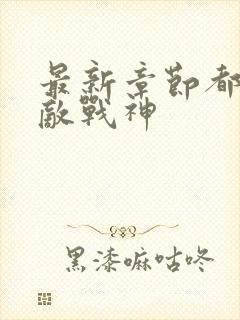 最新章节都
敵戰神
黑漆嘛咕咚